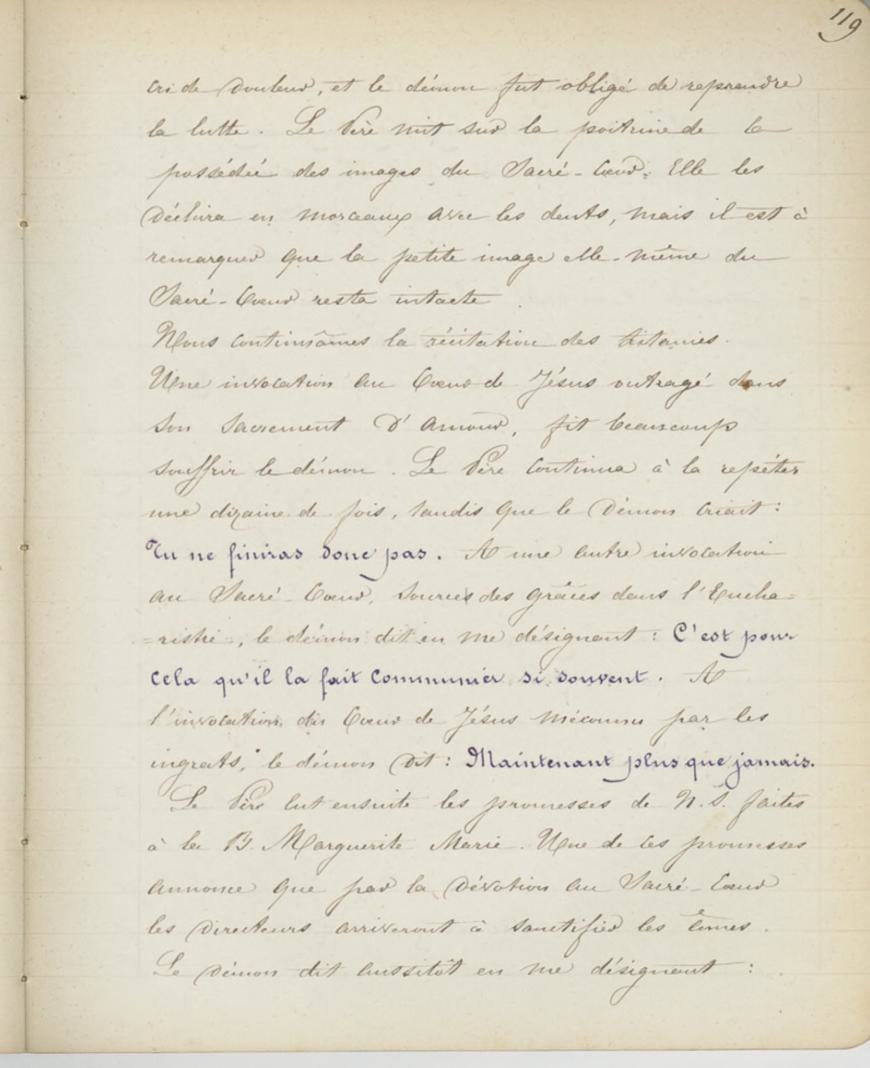 119
cri de douleur, et le démon fut obligé de reprendre
la lutte. Le Père mit sur la poitrine de la
possédée des images du Sacré-Cœur. Elle les
déchira en morceaux avec les dents, mais il est à
remarquer que la petite image elle-même du
Sacré-Cœur resta intacte.
Nous continuâmes la récitation des litanies.
Une invocation au Cœur de Jésus outragé dans
son Sacrement d'amour, fit beaucoup
souffrir le démon. Le Père continua à la repéter
une dizaine de fois, tandis que le Démon criait :
Tu ne finiras donc pas. A une autre invocation
au Sacré-Cœur, source des grâces dans l'Eucha=
=ristie, le démon dit en me désignant : C'est pour
cela qu'il la fait communier si souvent. A
l'invocation du Cœur de Jésus méconnu par les
ingrats," le démon dit : Maintenant plus que jamais.
Le Père lut ensuite les promesses de N.S. faites
à la B. Marguerite Marie. Une de ces promesses
annonce que par la dévotion au Sacré-Cœur
les directeurs arriveront à sanctifier les âmes.
Le Démon dit aussitôt en me désignant :